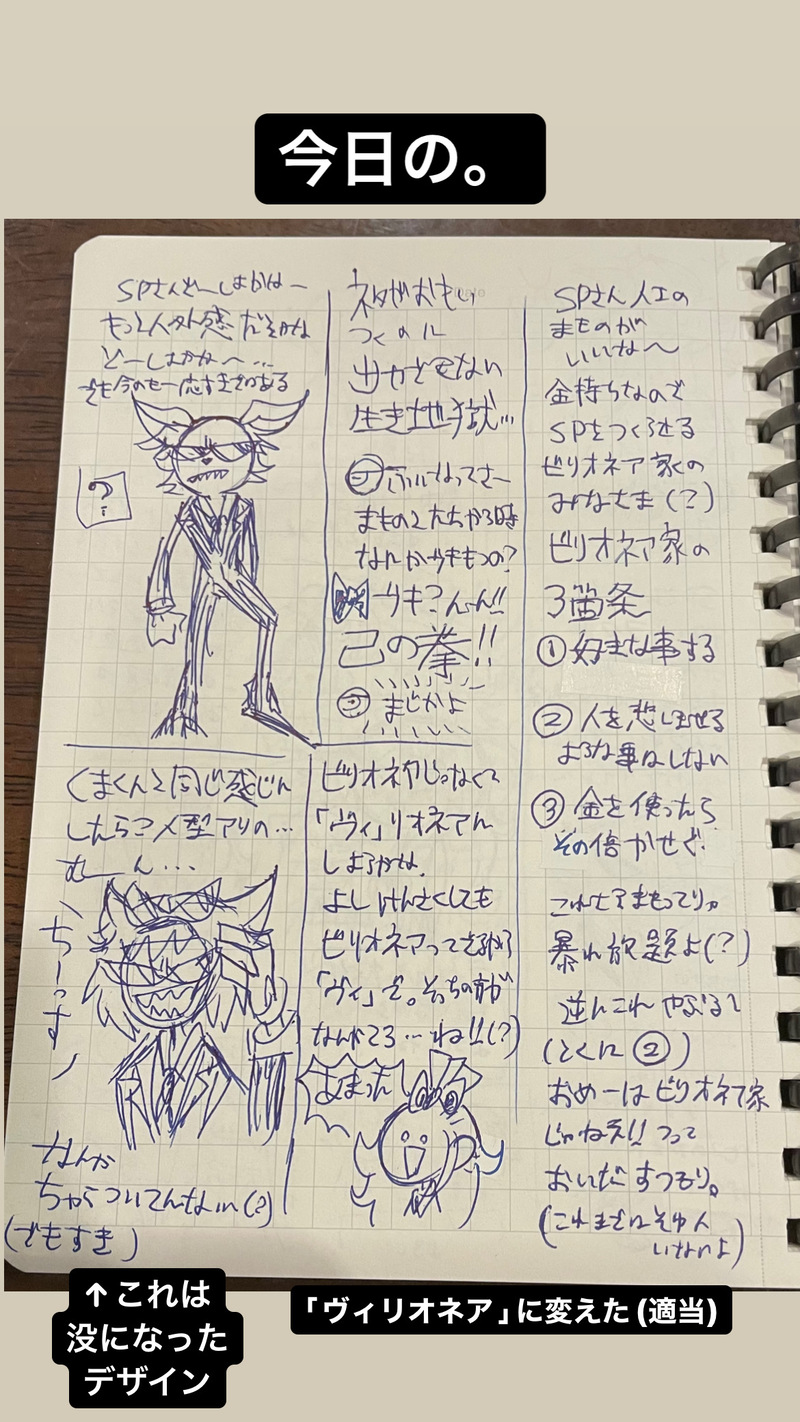 今日の。
SPさんどーしよかなー
もっと人外感 だそかな
どーしよかな〜…
でも今のも一応すきではある
?
くまくんと同じ感じに
したらさ人型アリの…
むーん...
ちーっす
なんか
ちゃらついてんなぃ(?)
(でもすき)
ネタがおもい
つくのに
出力できない
生き地獄…
ふいになってさー
まものとたたかう時
なんかブキもつの?
ブキ?んーん!!
己の拳!!
まじかよ
ビリオネアじゃなくて
「ヴィ」リオネアに
しようかな、
よし けんさくしても
ビリオネアってでるから
「ヴィ」で。そっちの方が
なんかさぁ…ね!!(?)
SPさん人工の
まものが
いいな〜
金持ちなので
SPをつくらせる
ビリオネア家の
みなさま(?)
ビリオネア家の
3箇条
① 好きな事する
② 人を悲しませる
ような事はしない
③ 金を使ったら
その倍かせぐ.
これさえまもってりゃ
暴れ放題よ(?)
逆にこれ やぶると
(とくに②)
おめーはビリオネア家
じゃねえ!! つって
おいだすつもり。
(これまでにそゆ人
いないよ)
↑これは
没になった
デザイン
「ヴィリオネア」に変えた(適当)